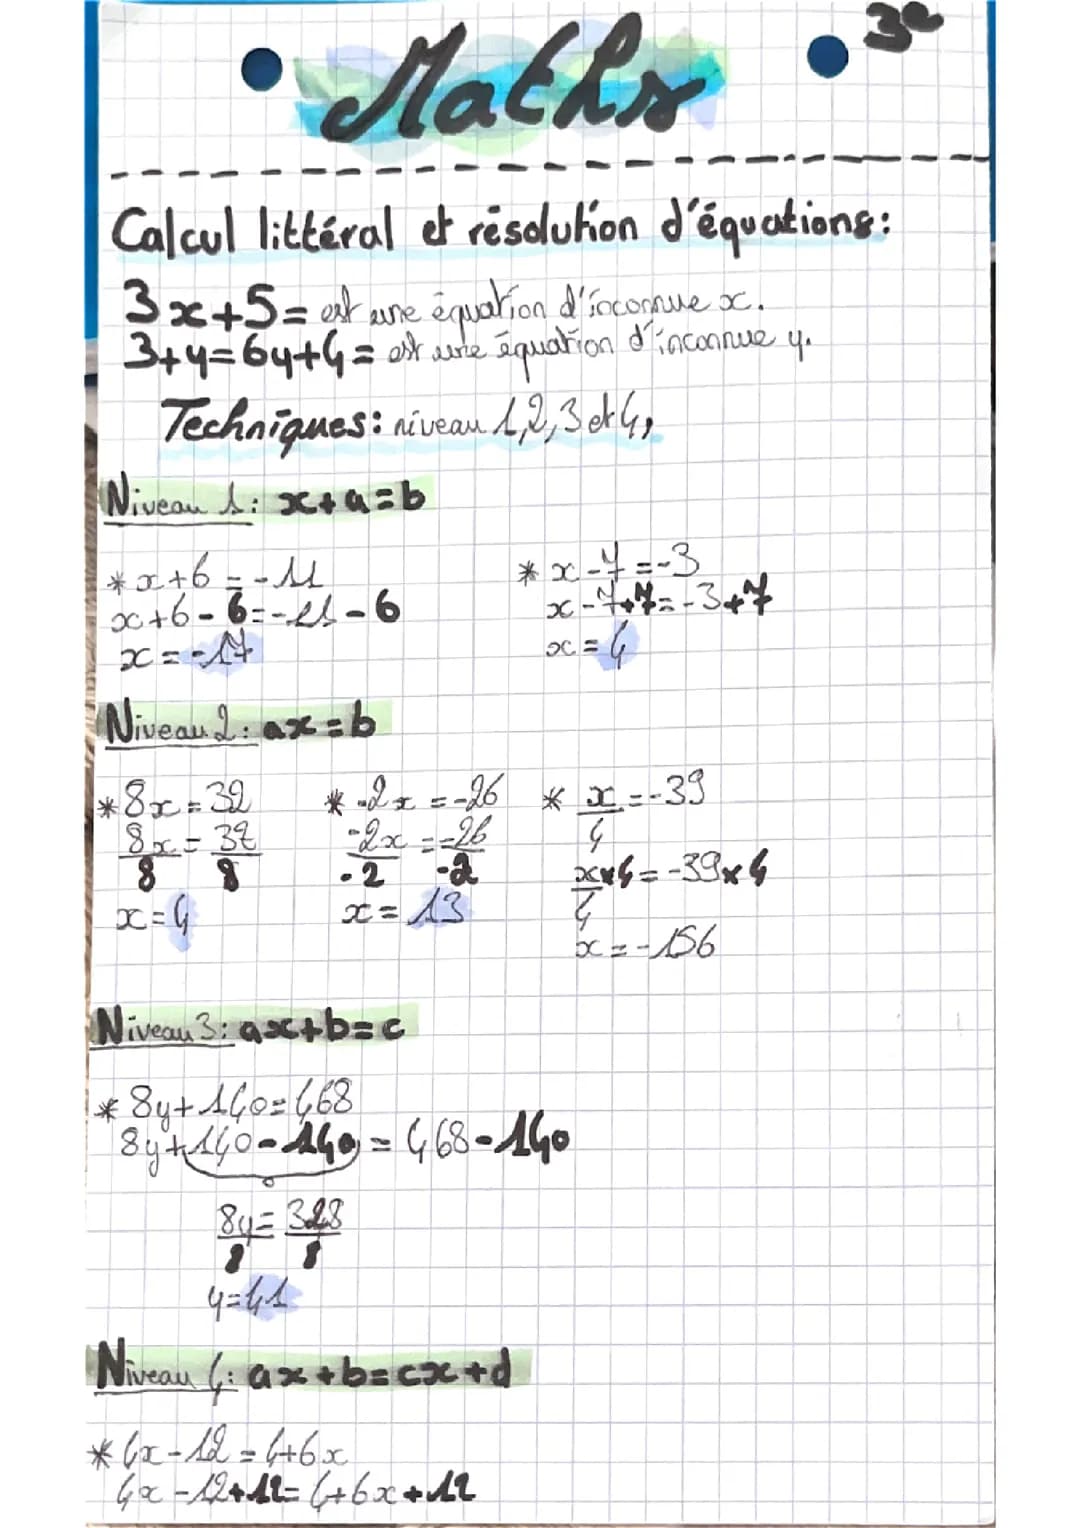 3e
Maths
Calcul littéral et résolution d'équations:
3x+5= est une équation d'inconnue x.
3+y=6y+4= est une équation d'inconnue y.
Techniques: niveau 1,2,3 et 4,
Niveau 1: x+a=b
* x+6=-11
x+6-6=-11-6
x=-17
* x-7=-3
x-7+7=-3+7
x=4
Niveau 2: ax=b
* 8x=32
8x=32
8 8
x=4
* -2x=-26
-2x=-26
-2 -2
x=13
* x=-39
4
x×4=-39×4
4
x=-156
Niveau 3: ax+b=c
* 8y+140=468
8y+140-140=468-140
0
8y=328
8 8
y=41
Niveau 4: ax+b=cx+d
* 4x-12=4+6x
4x-12+12=4+6x+12